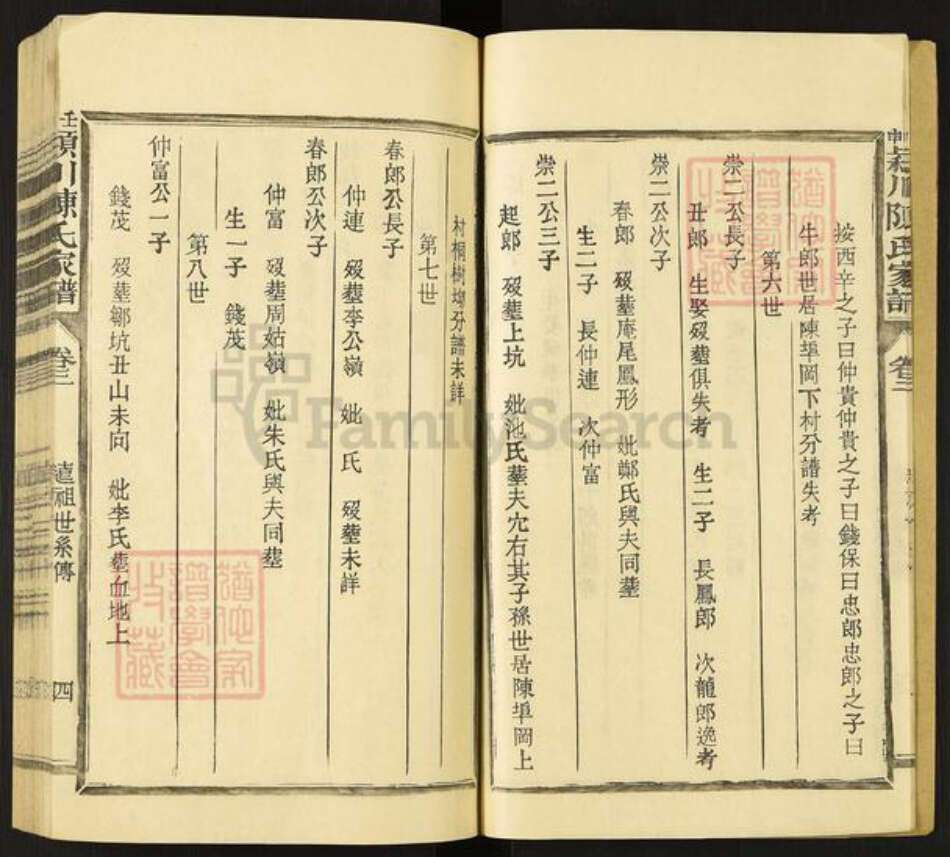 按西辛之子曰仲貴仲貴之子曰錢保曰忠郎忠郎之子曰
牛郎世居陳埠岡下村分譜失考
第六世
崇二公長子
丑郎 生娶歿塟俱失考 生二子 長鳳郎 次龍郎逸考
崇二公次子
春郎 歿塟庵尾鳳形 妣鄭氏與夫同塟
生二子 長仲連 次仲富
崇二公三子
起郎 歿塟上坑 妣池氏塟夫穴右其子孫世居陳埠岡上
村桐樹塆分譜未詳
第七世
春郎公長子
仲連 歿塟李公嶺 妣 氏 歿塟未詳
春郎公次子
仲富 歿塟周姑嶺 妣朱氏與夫同塟
生一子 錢茂
第八世
仲富公一子
錢茂 歿塟鄒坑丑山未向 妣李氏塟血地上
川陳氏家譜
卷二
遠祖世系傳
四
川陳氏家譜
卷二
猶他家譜學會收藏
猶他家譜學會收藏
FamilySearch